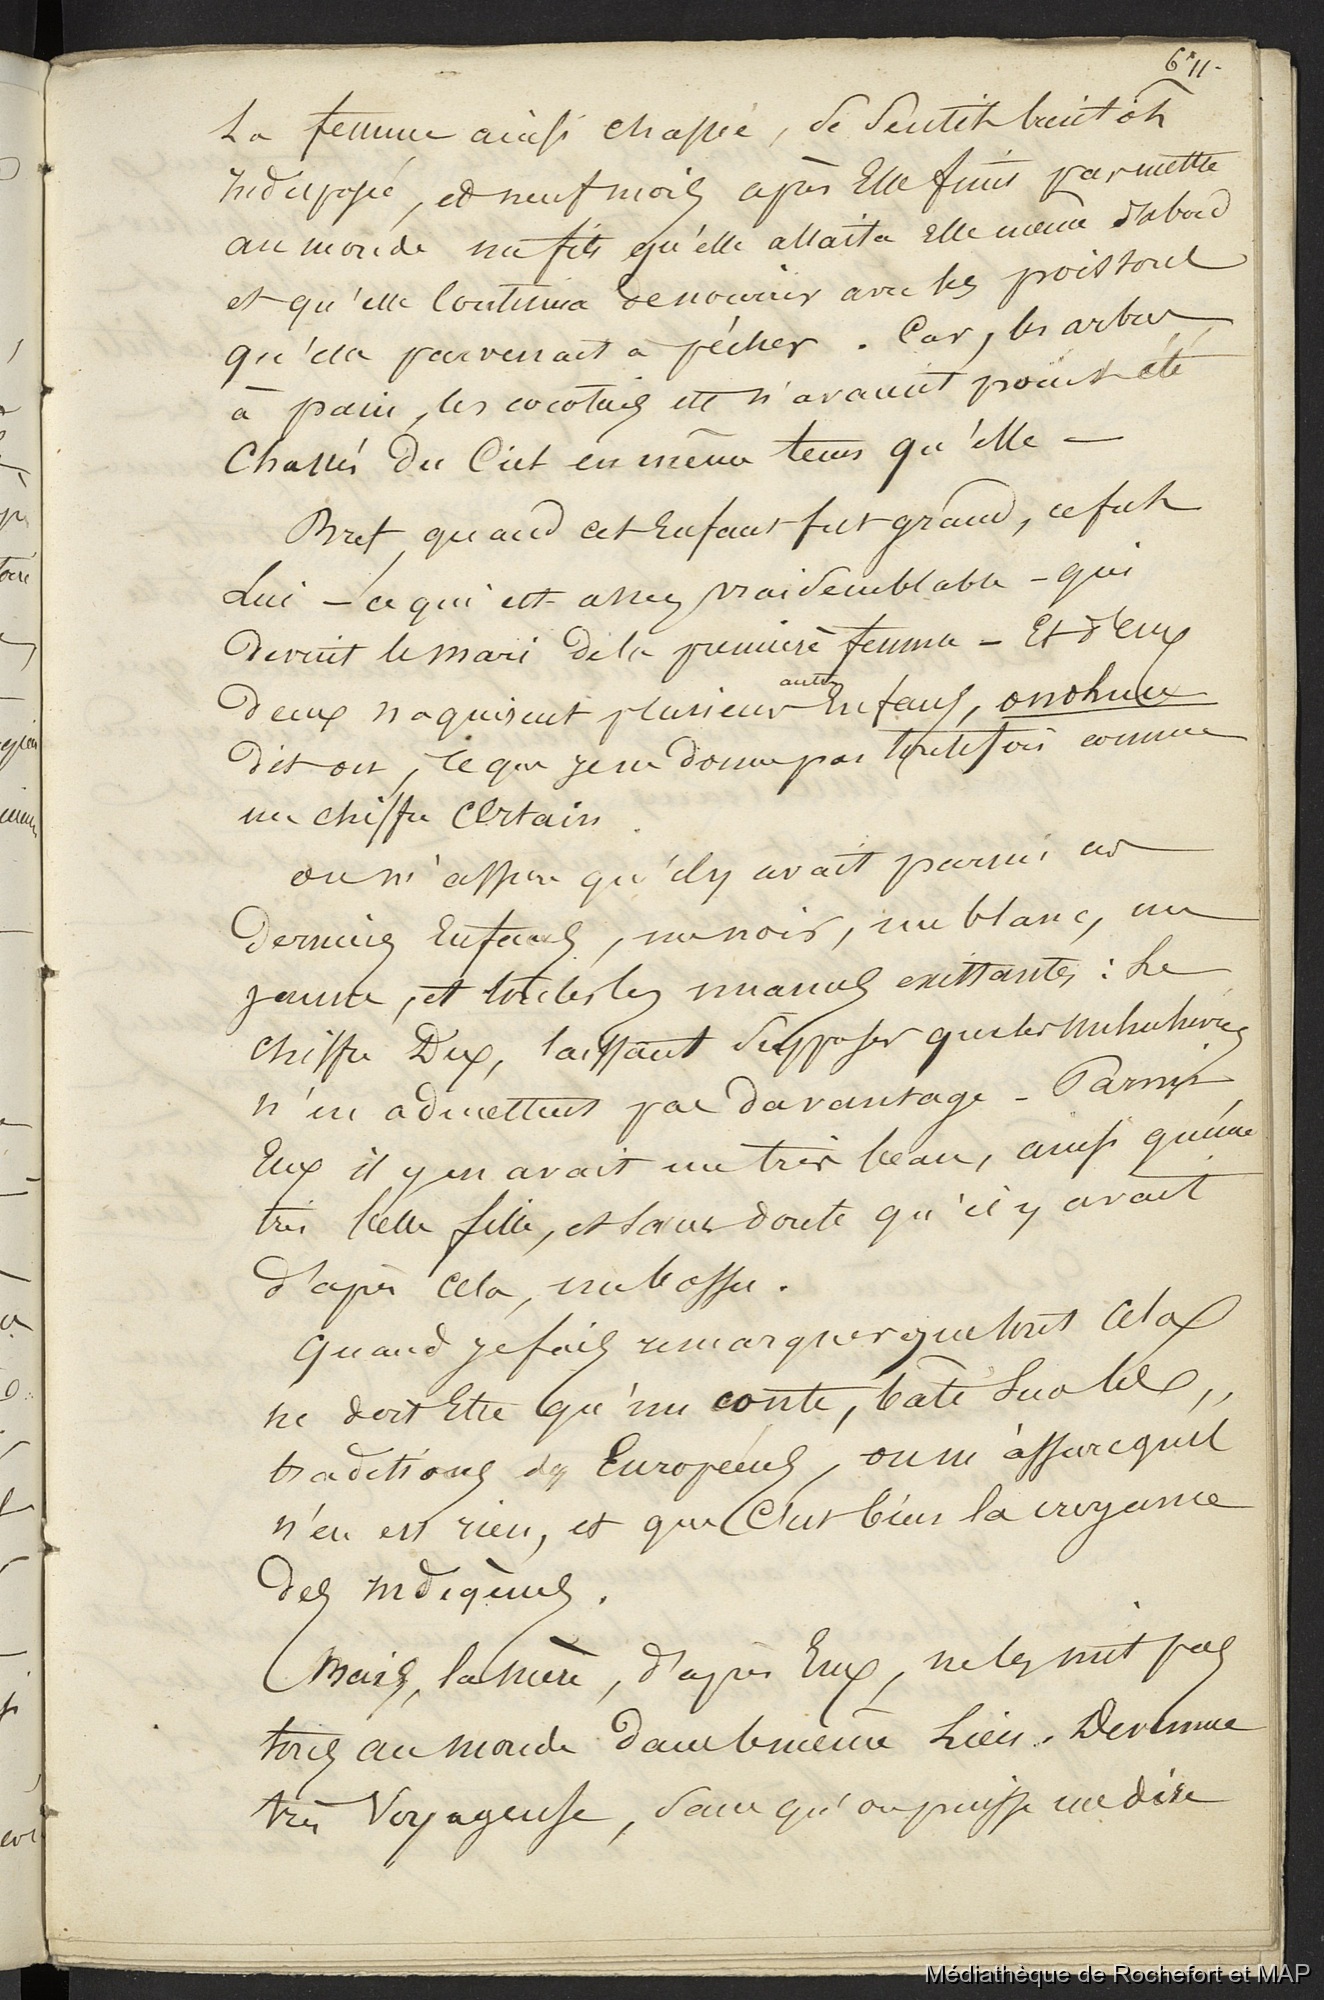 6 11.
La femme ainsi chassée, se sentit bientôt
Indisposée, et neuf mois après Elle finit par mettre
au monde un fils qu'elle allaita Elle même d'abord
et qu'elle Continua de nourrir avec les poissons
qu'elle parvenait à pêcher. Car, les arbres
à pain, les cocotiers etc n'avaient point été
Chassés du Ciel en même tems qu'elle —
Bref, quand cet Enfant fut grand, ce fut
Lui – ce qui est assez vraisemblable – qui
devint le mari de la première femme – Et d'Eux
deux naquirent plusieurs autres Enfans, onohuu
dit on, ce que je ne donne pas toutefois comme
un chiffre Certain.
on m'assure qu'il y avait parmi ces
derniers Enfans, un noir, un blanc, un
jaune, et toutes les nuances existantes : Le
chiffre Dix, laissant supposer que les Nuhuhiviens
n'en admettent pas davantage – Parmi
Eux il y en avait un très beau, ainsi qu'une
très belle fille, et sans doute qu'il y avait
d'après Cela, un bossu.
Quand je fais remarquer que tout Cela
ne doit Etre qu'un conte, bâti sur les
traditions des Européens, on m'assure qu'il
n'en est rien, et que C'est bien la croyance
des indigènes.
Mais, la mère, d'après Eux, ne les mit pas
tous au monde dans le même Lieu. Devenue
très Voyageuse, sans qu'on puisse me dire
Médiathèque de Rochefort et MAP